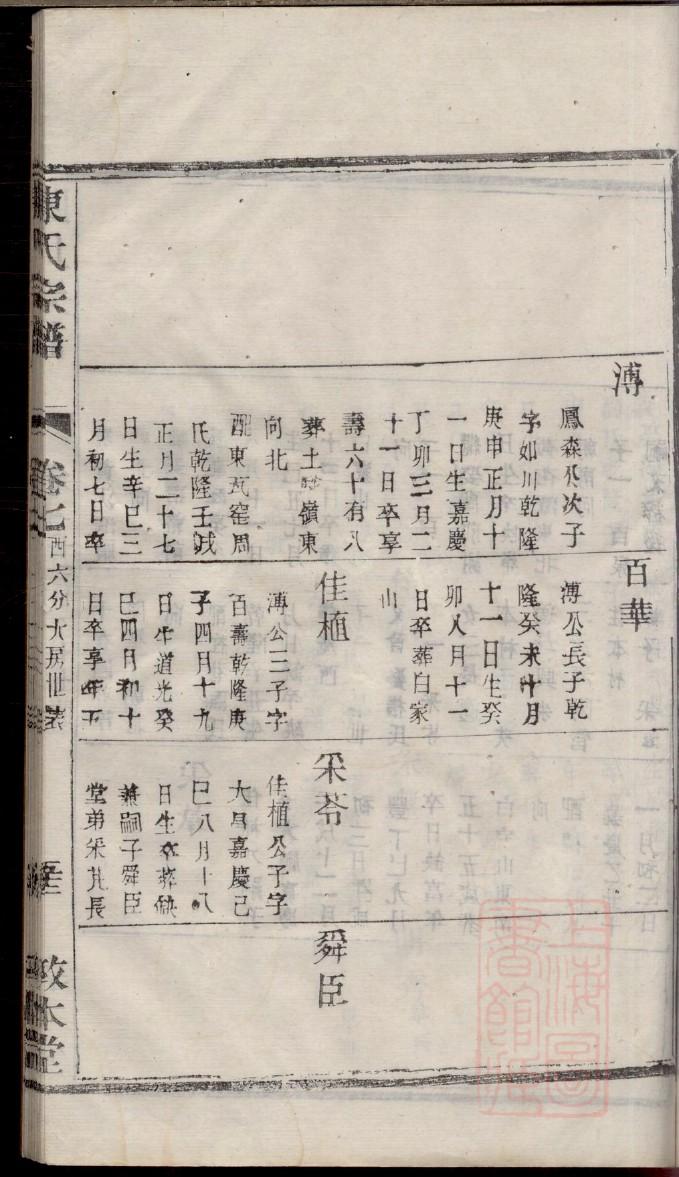 溥
鳳森公次子
字如川乾隆
庚申正月十
一日生嘉慶
丁卯三月二
十一日卒享
壽六十有八
葬土嶺東
向北
配東瓦窑周
氏乾隆壬戌
正月二十七
日生辛巳三
月初七日卒
百華
溥公長子乾
隆癸未十月
十一日生癸
卯八月十一
日卒葬白家
山
佳植
溥公三子字
百壽乾隆庚
子四月十九
日生道光癸
巳四月初十
日卒享年五
采苓
佳植公子字
大昌嘉慶己
巳八月十八
日生卒葬缺
兼嗣子舜臣
堂弟采芃長
舜臣
陳氏宗譜
卷七
西六分大房世表
敦本堂
上海圖書館藏